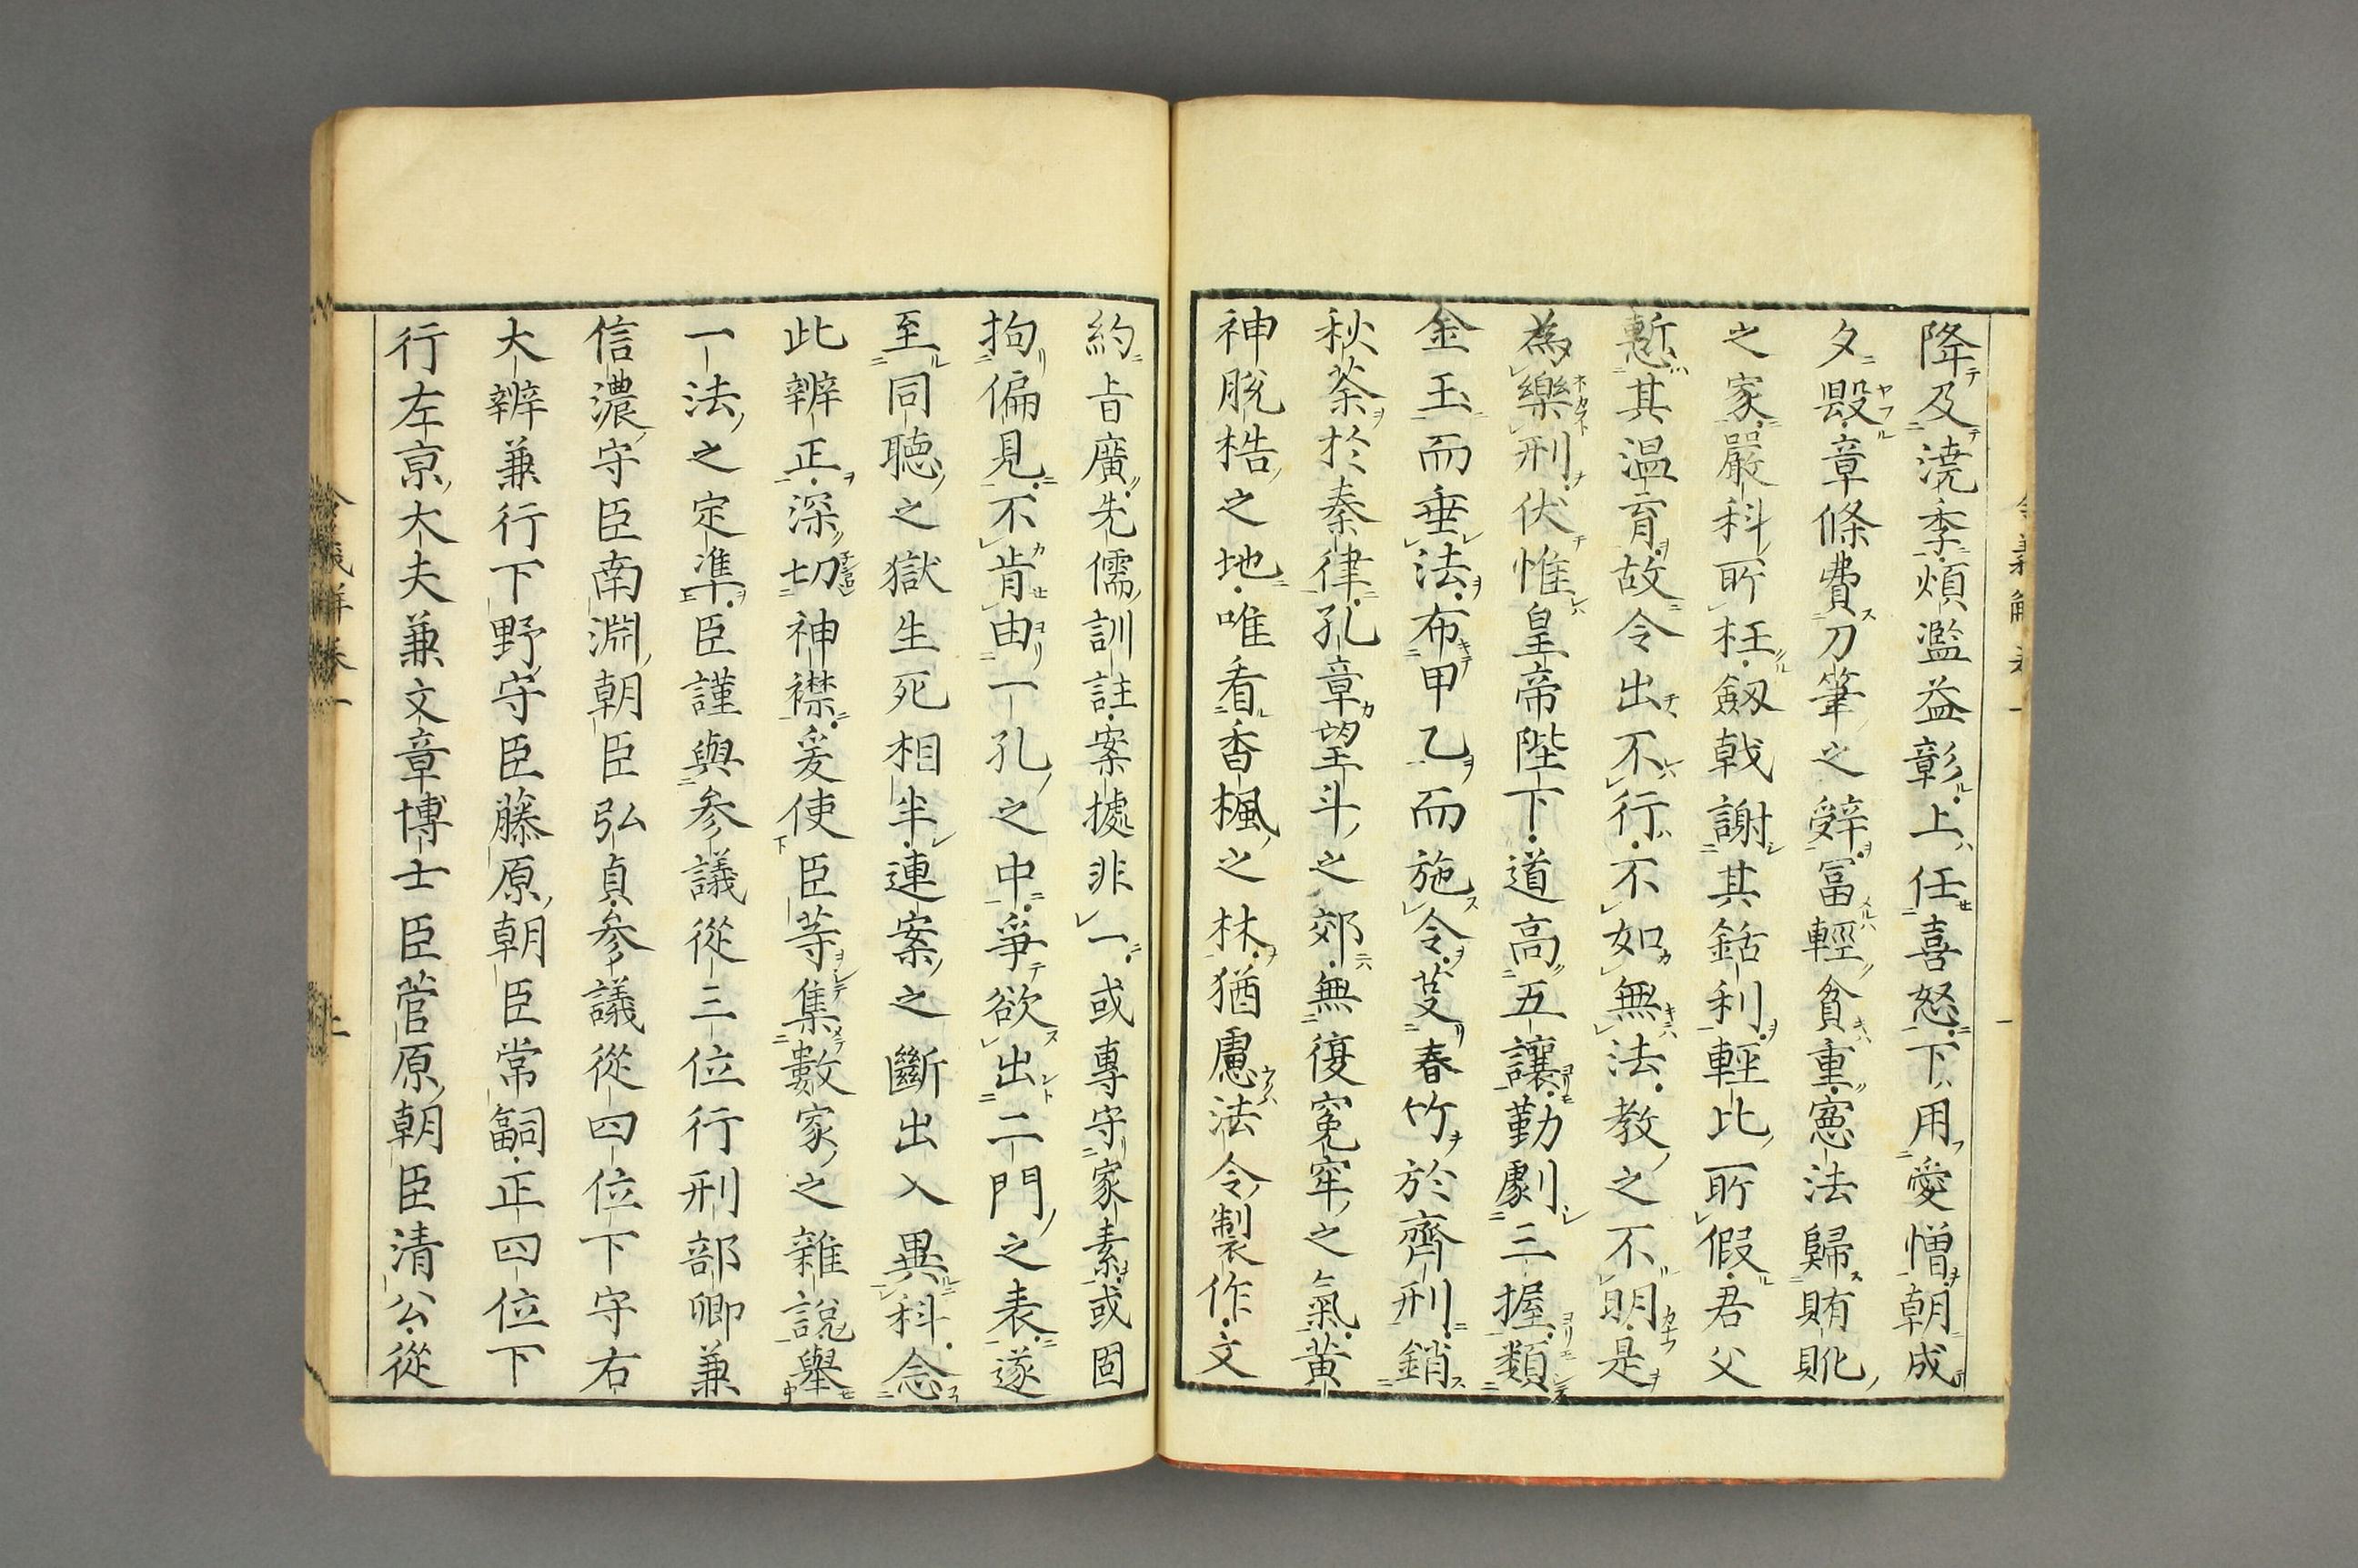 降及澆季煩濫益彰上任喜怒下用愛憎朝成
夕毀章條費刀筆之辭冨輕貧重憲法歸賄貨
之家嚴科所枉劔戟謝其銛利輕比所假君父
慙其温育故令出不行不如無法教之不明是
為樂刑伏惟皇帝陛下道高五讓勤劇三握類
金玉而垂法布甲乙而施令芟春竹於齊刑銷
秋荼於秦律孔章望斗之郊無復寃牢之氣黄
神脫梏之地唯看香楓之林猶慮法令製作文
約旨廣先儒訓註案據非一或專守家素或固
拘偏見不肯由一孔之中爭欲出二門之表遂
至同聴之獄生死相半連案之斷出入異科念
此辨正深切神襟爰使臣等集數家之雜說舉
一法之定準臣謹與參議從三位行刑部卿兼
信濃守臣南淵朝臣弘貞參議從四位下守右
大辨兼行下野守臣藤原朝臣常嗣正四位下
行左京大夫兼文章博士臣菅原朝臣清公從